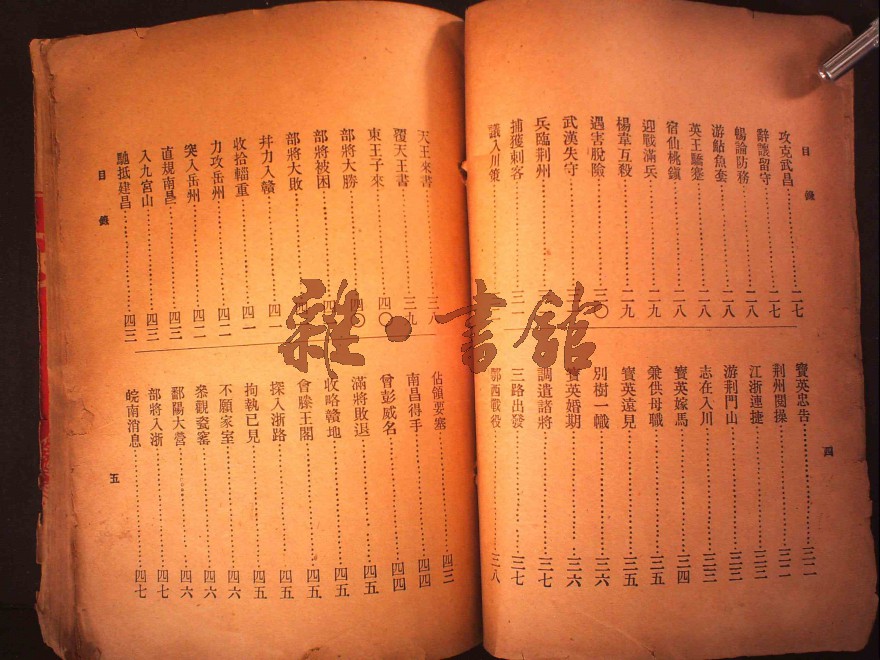 目錄
攻克武昌 二七
辭讓留守 二七
暢論防務 二八
游鮎魚套 二八
英王驕蹇 二八
宿仙桃鎮 二八
迎戰滿兵 二九
楊韋互殺 二九
遇害脫險 三〇
武漢失守
兵臨荆州
捕獲刺客 三一
議入川策
寶英忠告 三二
荆州閱操 三二
江浙連捷 三三
游荆門山 三三
志在入川 三三
寶英嫁馬 三四
兼供母職 三五
寶英遠見 三五
別樹一幟 三六
寶英婚期 三六
調遣諸將 三七
三路出發 三七
鄂西戰役 三八
四
天王來書 三八
覆天王書 三九
東王子來 四〇
部將大勝 四〇
部將被困
部將大敗
幷力入贛 四一
收拾輜重 四一
力攻岳州 四二
突入岳州 四二
直規南昌 四三
入九宮山 四三
馳抵建昌 四三
目錄
佔領要塞 四三
南昌得手 四四
曾彭威名 四四
滿將敗退 四五
收略贛地 四五
會滕王閣 四五
探入浙路 四五
拘執已見 四五
不願家室 四六
參觀瓷窰 四六
鄱陽大營 四六
部將入浙 四七
皖南消息 四七
五
雜·書館